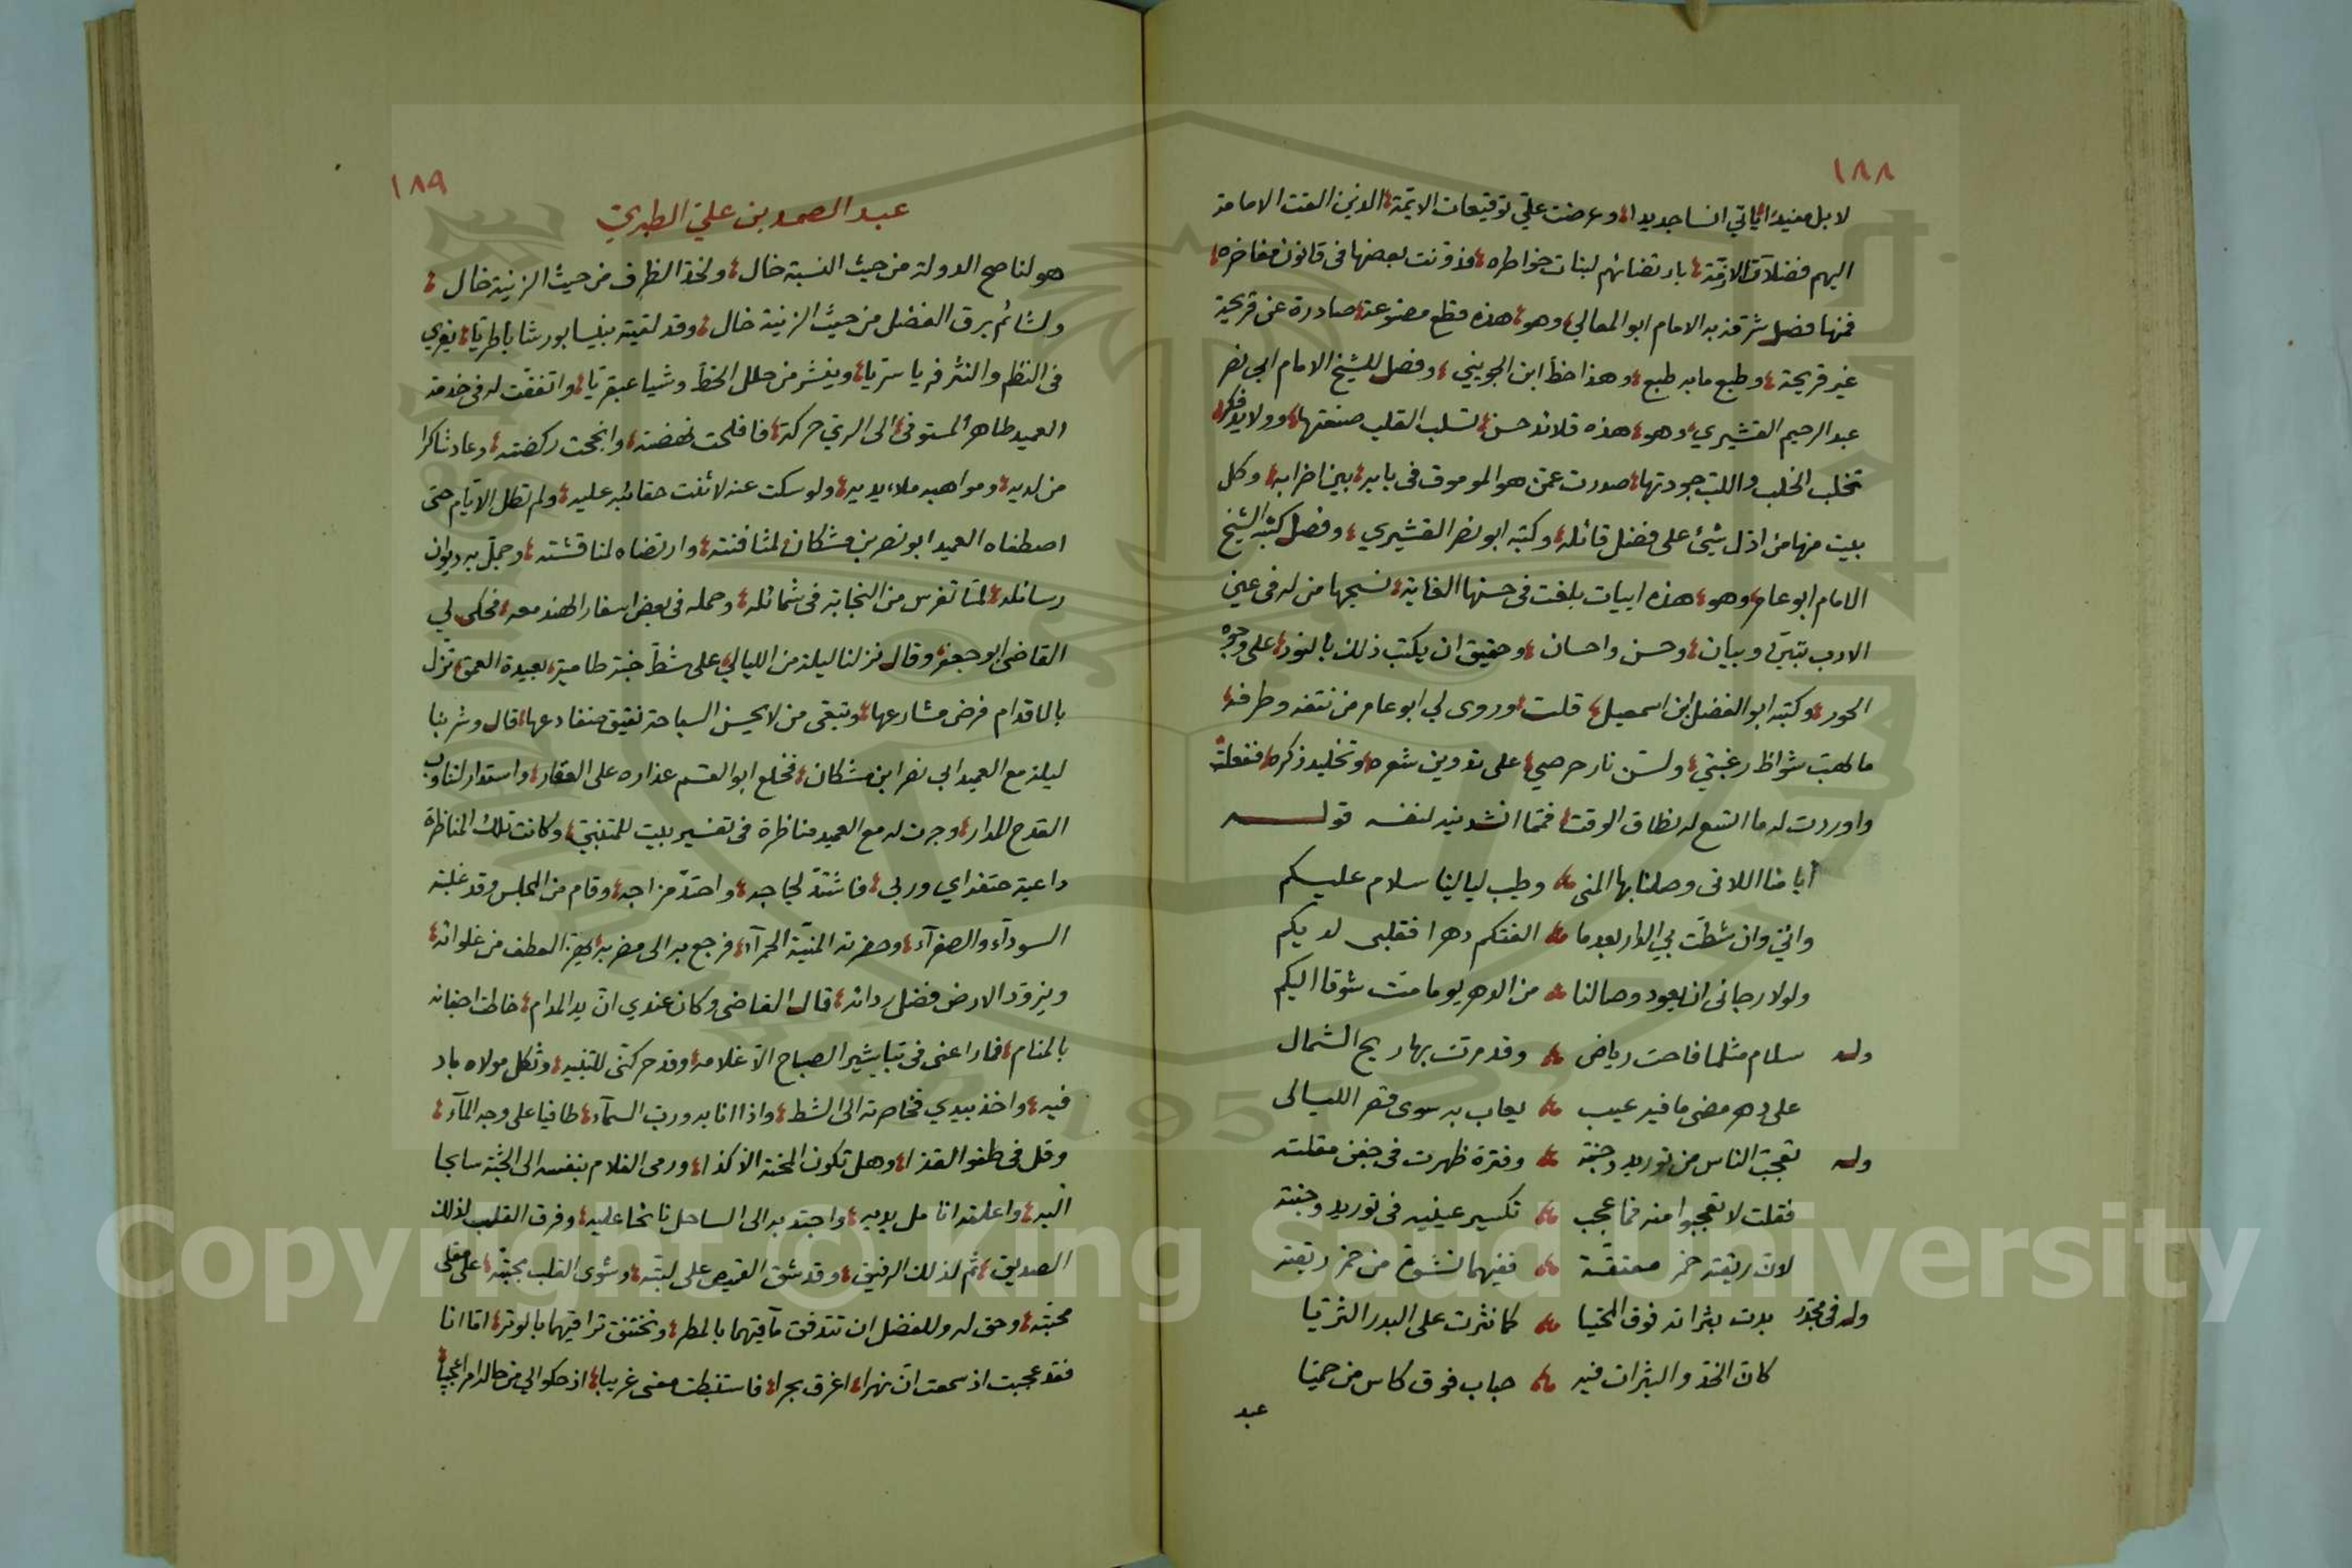 ١٨٨
لا بل مفيدا ياتي انسا جديدا، وعرضت عليّ توقيعات الايمّة، الذين القت الامامة
اليهم فضلات الازمّة، بارتضائهم لبنات خواطره، فذوقنت بعضها فى قانون مفاخره،
فمنها فصل شرّفه به الامام ابو المعالي، وهو، هذه قطع مصنوعة، صادرة عن قريحة
غير قريحة، وطبع ما به طبع، وهذا خط ابن الجويني، وفصل للشيخ الامام ابي نصر
عبد الرحيم القشيري، وهو، هذه قلائد حسن، تسلب القلب صنعتها، وولايد فكر،
تخلب الخلب واللب جودتها، صدرت عمّن هو الموموق فى بابه، بين اضرابه، وكل
بيت منها من ادل شيئ على فضل قائله، وكتبه ابو نصر القشيري، وفصل كتبه الشيخ
الامام ابو عامر، وهو، هذه ابيات بلغت فى حسنها الغاية، نسيجها من له فى عين
الادب تبيّن وبيان، وحسن واحسان، وحقيق ان يكتب ذلك بالنور، على وجوه
الحور، وكتبه ابو الفضل ابن اسمعيل، قلت، وروى لي ابو عامر من نتفه وطرفه،
ما لهبت شواظ رغبتي، ولسّن نار حرصي، على تدوين شعره، وتخليد ذكره، ففعلت،
واوردت له ما اتسع له نطاق الوقت، فممّا انشدنيه لنفسه قوله
أيامنا اللاتى وصلنا بها المنى وطيب ليالينا سلام عليكم
وانّي وان شطّت بي الدار بعدما الفتكم دهرا فقلبى لديكم
ولولا رجائى ان يعود وصالنا من الدهر يوما متّ شوقا اليكم
وله سلام مثلما فاحت رياض وقد مرّت بها ريح الشمال
على دهر مضى ما فيه عيب يعاب به سوى قصر الليالى
وله تعجّب الناس من توريد وجنته وفترة ظهرت فى جفن مقلته
فقلت لا تعجبوا منه فما عجب تكسير عينيه فى توريد وجنته
لانّ ريقته خمر معتقّة ففيهما نشوة من خمر ريقته
وله فى مجدّر بدت بثراته فوق المحيّا كما نثرت على البدر الثريّا
كانّ الخدّ والبثرات فيه حباب فوق كاس من حميّا
عبد
١٨٩
عبد الصمد بن علي الطبري
هو لناصح الدولة من حيث النسبة خال، ولخدّ الظرف من حيث الزينة خال،
ولشائم برق الفضل من حيث الزينة خال، وقد لقيته بنيسابور شابا طريّا، يفري
فى النظم والنثر فريا سريّا، وينشر من حلل الخطّ وشيا عبقريّا، واتفقت له فى خدمة
العميد طاهر المستوفى، الى الري حركة، فافلحت نهضته، وانجحت ركضته، وعاد شاكرا
من لديه، ومواهبه ملاء يديه، ولو سكت عنه لاثنت حقائبه عليه، ولم تطل الايّام حتى
اصطفاه العميد ابو نصر بن مشكان، لمثافنته، وارتضاه لمناقشته، وجمّل به ديوان
رسائله، لمّا تفرس من النجابة فى شمائله، وحمله فى بعض اسفار الهند معه، فحكى لي
القاضى ابو جعفر، وقال نزلنا ليلة من الليالي، على شطّ جبّة طامية، بعيدة العمق، تزل
بالاقدام فرض مشارعها، وتبقى من لا يحسن السباحة نقيق ضفادعها، قال وشربنا
ليلة مع العميد ابي نصر ابن مشكان، فخلع ابو القسم عذاره على العقار، واستدار لتناوب
القدح المدار، وجرت له مع العميد مناظرة فى تفسير بيت للمتنبّي، وكانت تلك المناظرة
داعية حتفه اي وربي، فاشتدّ لجاجه، واحتدّ مزاجه، وقام من المجلس وقد غلبته
السوداء والصفرآء، وحضرته المنيّة الحمرآء، فرجع به الى مضربه، يهزّ العطف من غلوائه،
ويزوّد الارض فضل ردائه، قال القاضى وكان عندي انّ يد المدام، خاطت اجفانه
بالمنام، فما راعنى فى تباشير الصباح الّا غلامه، وقد حركنى للتنبيه، وثكل مولاه باد
فيه، واخذ بيدي فخاصرته الى الشط، واذا انا به ورب السمآء، طافيا على وجه المآء،
وقل فى طفو القذا، وهل تكون المحنة الا كذا، ورمى الغلام بنفسه الى الجبّة سابحا
اليه، واعلقه انا مل يديه، واجتذبه الى الساحل نائحا عليه، وفرق القلب لذلك
الصديق، ثم لذلك الرفيق، وقد شق القميص على لبّته، وشوى القلب بجبّه، على مقلى
محبّته، وحق له وللفضل ان تتدفق مآقيهما بالمطر، وتختنق تراقيهما بالوتر، امّا انا
فقد عجبت اذ سمعت انّ نهرا، اغرق بحرا، فاستنبطت معنى غريبا، اذ حكوا لي من حاله امرا عجيبا،
Copyright © King Saud University
1957